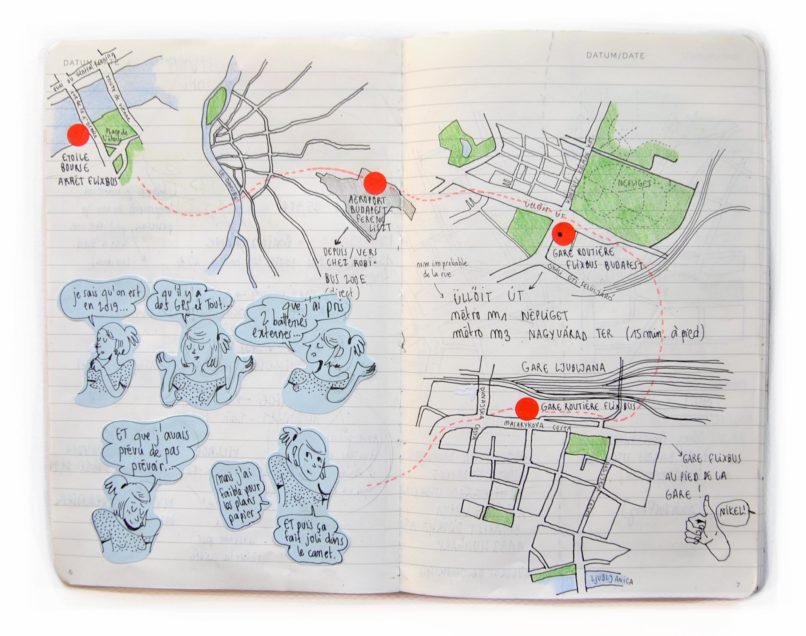 DATUM/DATE
Place de l'étoile
ETOILE
BOURSE
ARRÊT FLIXBUS
AÉROPORT
BUDAPEST
FERENC
LISZT
DEPUIS/VERS
CHEZ ROBI.
BUS 200E
(direct)
je sais qu'on est
en 2019...
qu'il y a
des GPS et Tout...
que j'ai pris
2 batteries
externes...
ET que j'avais
prévu de pas
prévoir...
mais j'ai
faible pour
les plans
papier
ET puis ça
fait joli dans
le carnet.
6
DATUM/DATE
NÉPLIGET
ÜLLŐI ÚT
GARE ROUTIÈRE
FLIXBUS BUDAPEST
nom improbable
de la rue
ÜLLŐIT ÚT
métro M1 NÉPLIGET
métro M3 NAGYVÁRAD TER (15 min. à pied)
GARE LJUBLJANA
GARE ROUTIÈRE FLIXBUS
DUNAJSKA
CESTA
MASARYKOVA CESTA
GARE FLIXBUS
AU PIED DE LA
GARE !
NIKEL!
LJUBLJANICA
7